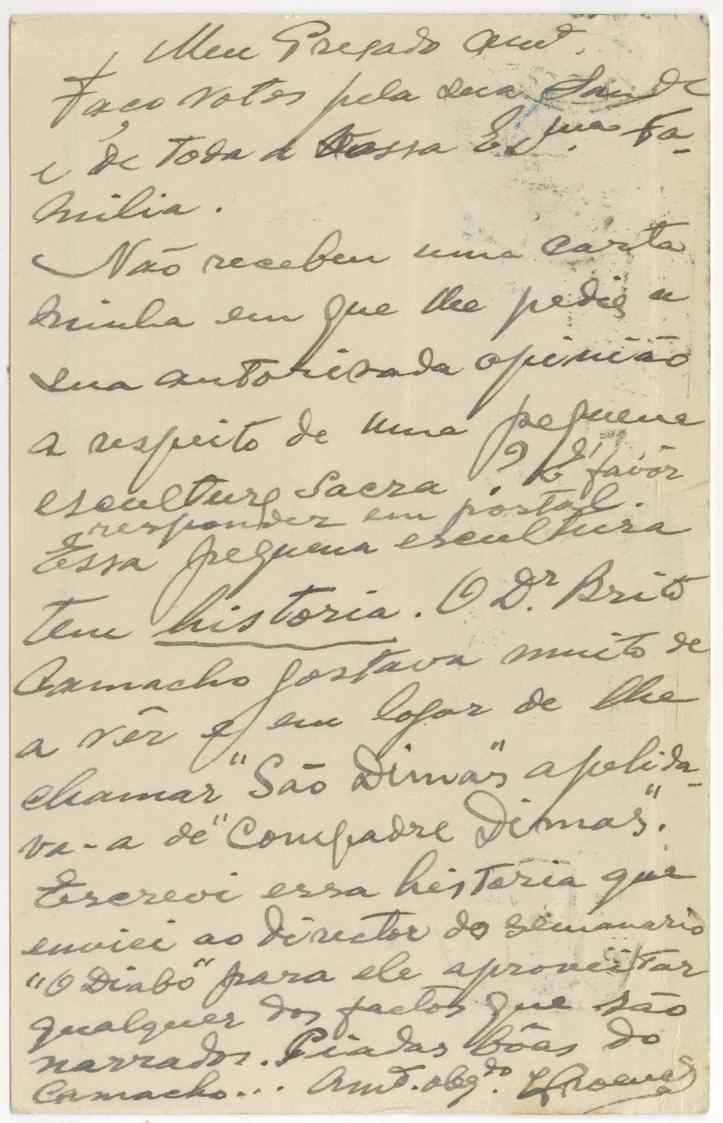 Meu Presado Amº.
Faço votos pela sua Saude
e de toda a Vossa Exma Fa-
milia.
Não recebeu uma carta
minha em que lhe pedia a
sua autorisada opinião
a respeito de uma pequena
escultura Sacra? É favôr
responder em postal.
Essa pequena escultura
tem historia. O Dr. Brito
Camacho gostava muito de
a vêr e em logar de lhe
chamar "São Dimas" apelida-
va-a de "Compadre Dimas".
Escrevi essa historia que
enviei ao director do semanario
"O Diabo" para ele aproveitar
qualquer dos factos que são
narrados. Piadas bôas do
Camacho... Amº. obgdo.